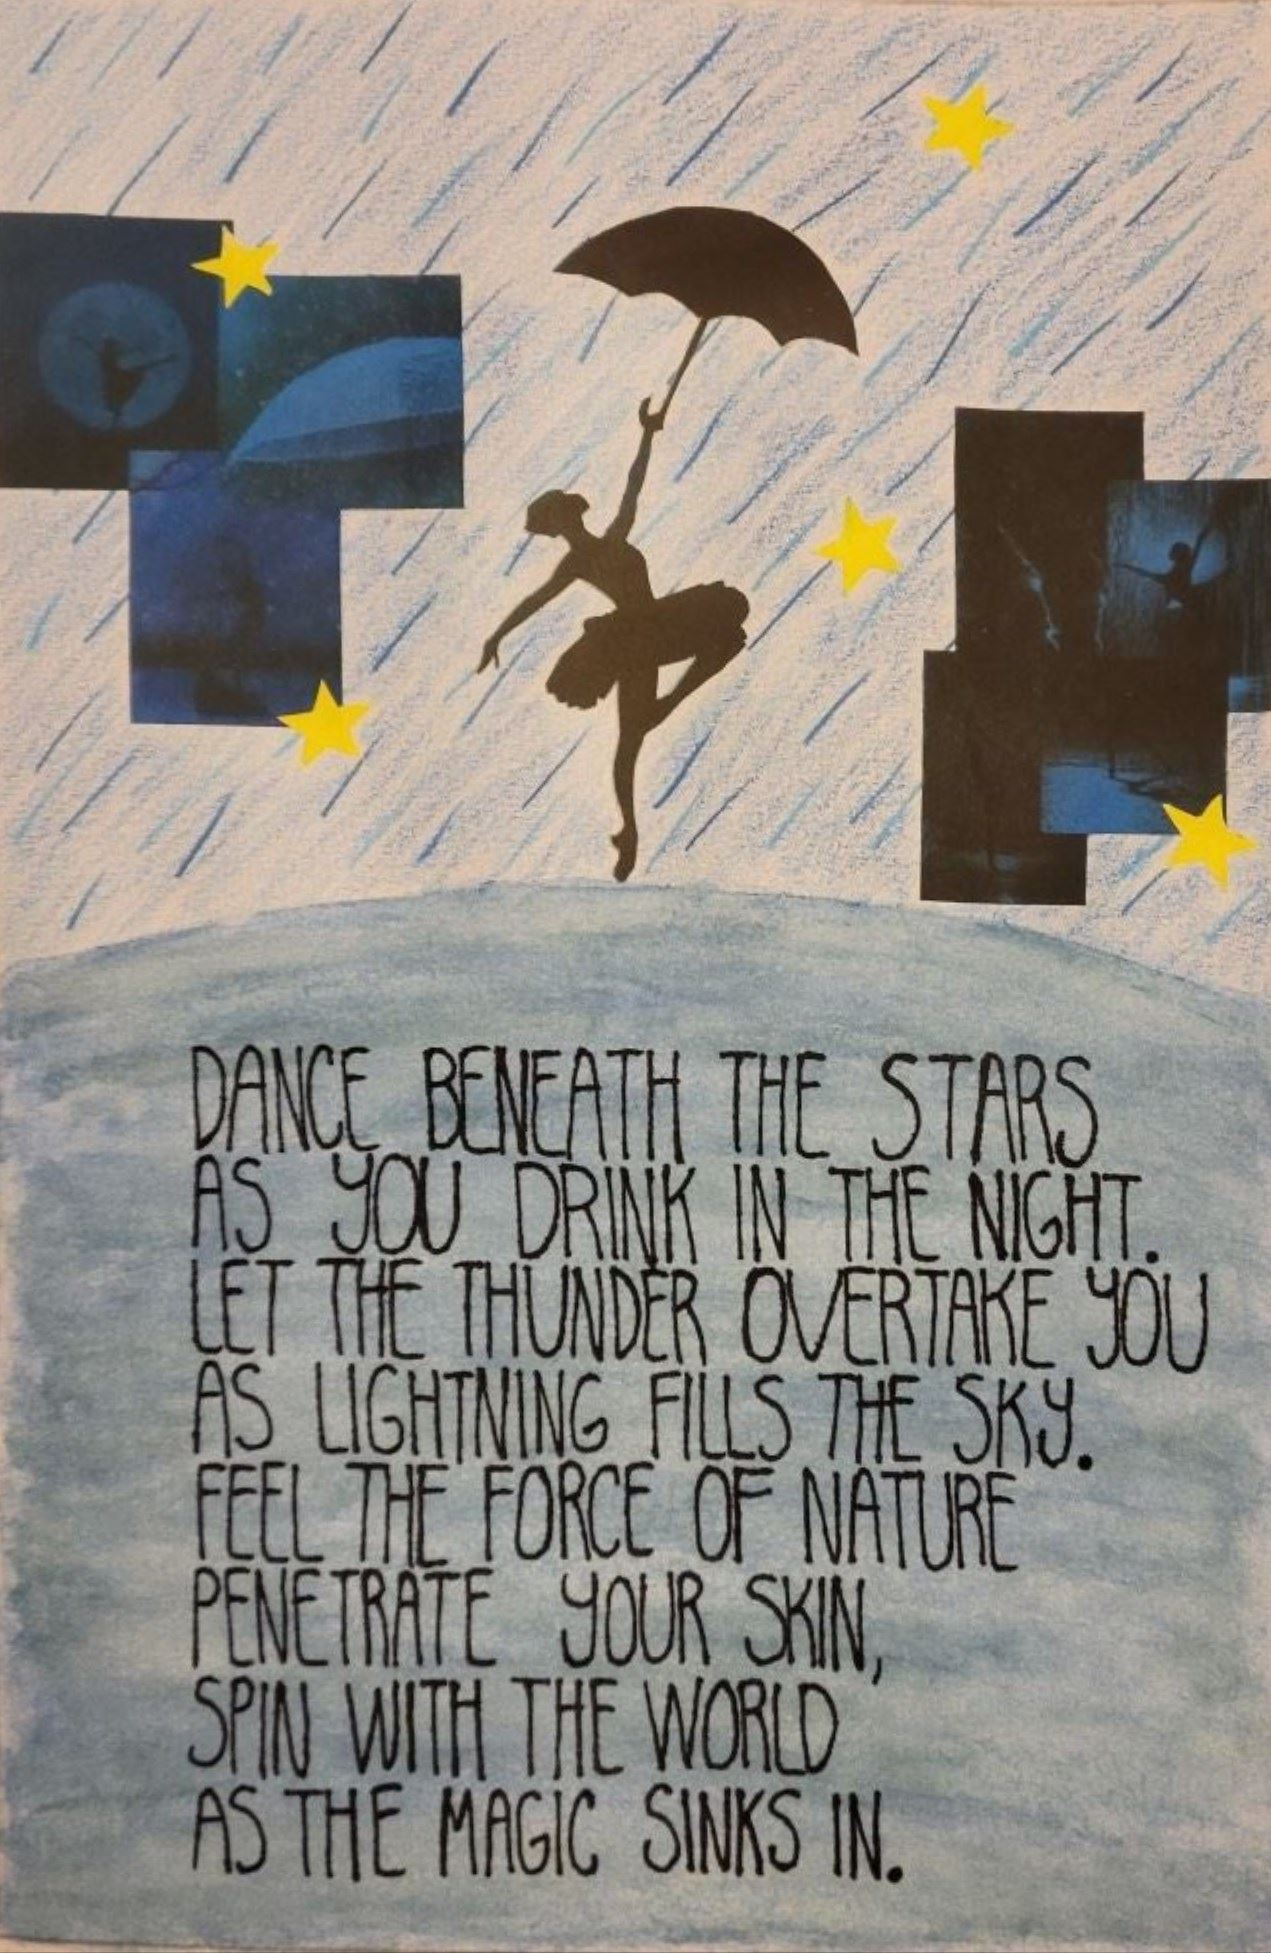 DANCE BENEATH THE STARS
AS YOU DRINK IN THE NIGHT.
LET THE THUNDER OVERTAKE YOU
AS LIGHTNING FILLS THE SKY.
FEEL THE FORCE OF NATURE
PENETRATE YOUR SKIN,
SPIN WITH THE WORLD
AS THE MAGIC SINKS IN.